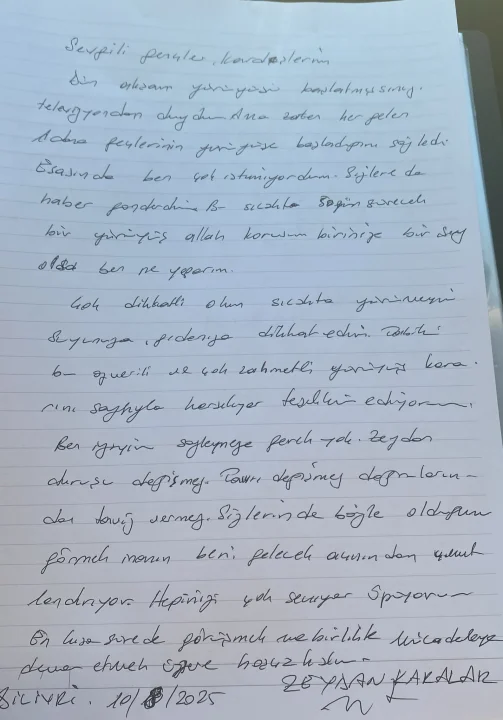 Sevgili gençler, kardeşlerim
Dün akşam yürüyüşü başlatmışsınız.
televizyondan duydum Ama zaten her gelen
Adana gençlerinin yürüyüşe başladığını söyledi
Esasında ben çok istemiyordum. Sizlere de
haber gönderdim. Bu sıcakta 8 gün sürecek
bir yürüyüş allah korusun birinize bir şey
olsa ben ne yaparım.
Çok dikkatli olun sıcakta yürümeyin
Suyunuza, gıdanıza dikkat edin. Tabiki
bu özverili ve çok zahmetli yürüyüş kara-
rını saygıyla karşılıyor teşekkür ediyorum.
Ben iyiyim söylemeye gerek yok. Zeydan
duruşu değişmez. Tavrı değişmez doğruların-
dan taviz vermez. Sizlerinde böyle olduğunu
görmek inanın beni gelecek açısından umut
lendiriyor. Hepinizi çok seviyor öpüyorum
En kısa sürede görüşmek ve birlikte mücadeleye
devam etmek üzere hoşça kalın.
SİLİVRİ. 10/8/2025 ZEYDAN KARALAR